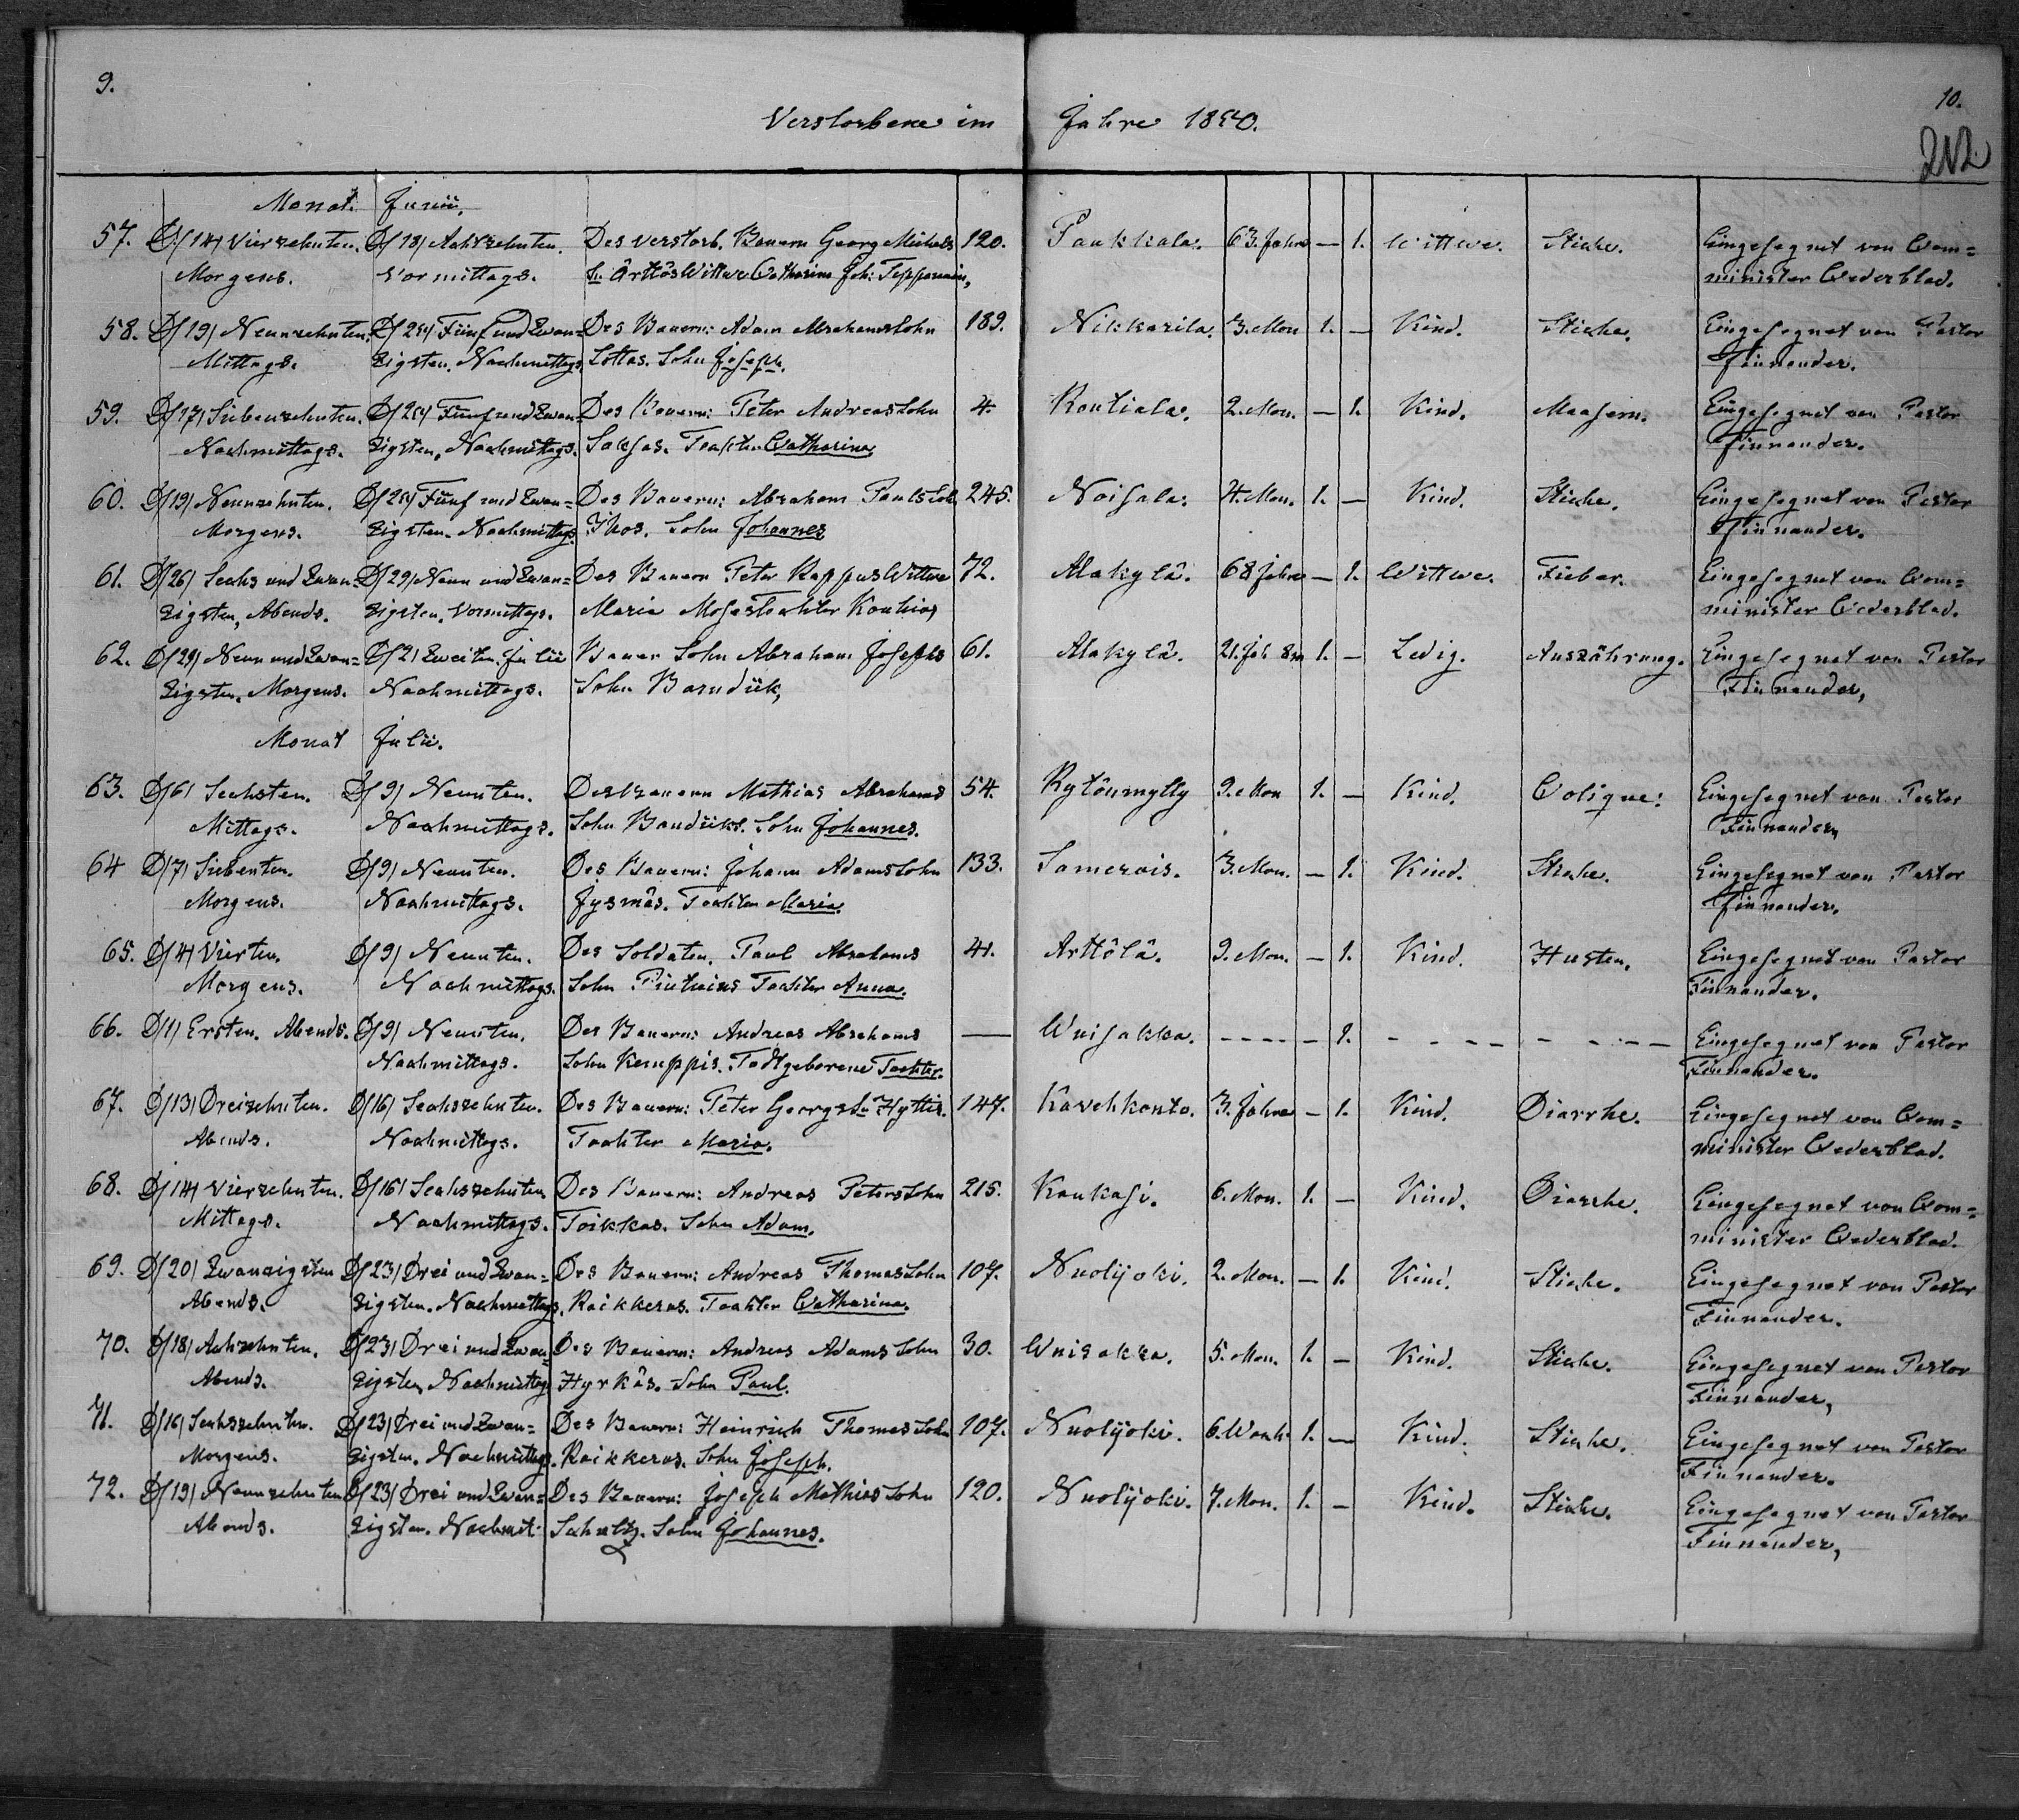 9.
10.
Verstorbene im Jahre 1850.
212
Monat Junii.
57. D/14/ Vierzehnten. D/18/ Achtzehnten. Des verstorb. Bauern Georg Michels 120. Paukkala. 63. Jahre — 1. Wittwe. Stiche. Eingesegnet von Com=
Morgens. Vormittags. S. Örttös Wittwe Catharina Joh: minister Cederblad.
58. D/19/ Neunzehnten. D/25/ Fünf und Zwan= Des Bauern: Adam Abrahamssohn 189. Nikkarila. 3. Mon 1. — Kind. Stiche. Eingesegnet von Pastor
Mittags. zigsten. Nachmittags. Sottas. Sohn Joseph. Finnander.
59. D/17/ Siebenzehnten. D/25/ Fünf und Zwan= Des Bauern: Peter Andreassohn 4. Kontiala. 2. Mon. — 1. Kind. Masern. Eingesegnet von Pastor
Nachmittags. zigsten, Nachmittags. Saksas. Tochter Catharina Finnander.
60. D/19/ Neunzehnten. D/25/ Fünf und Zwan= Des Bauern: Abraham Paulssoh. 245. Noisala. 4. Mon. 1. — Kind. Stiche. Eingesegnet von Pastor
Morgens. zigsten. Nachmittags. Ihos. Sohn Johannes Finnander.
61. D/26/ Sechs und Zwan= D/29/ Neun und Zwan= Des Bauern Peter Rappus Wittwe 72. Alakylä. 68 Jahre — 1. Wittwe. Fieber. Eingesegnet von Com=
zigsten, Abends. zigsten, Vormittags. Maria Moses Tochter minister Cederblad.
62. D/29/ Neun und Zwan= D/2/ Zweiten Julii Bauer Sohn Abraham Josephs 61. Alakylä. 21. Jah. 8m 1. — Ledig. Auszährung. Eingesegnet von Pastor
zigsten, Morgens. Nachmittags. Sohn Finnander,
Monat Julii.
63. D/6/ Sechsten. D/9/ Neunten. Des Bauern Mathias Abrahams 54. Rytönmylly 9. Mon 1. — Kind. Colique: Eingesegnet von Pastor
Mittags. Nachmittags. Sohn Sohn Johannes. Finnander,
64 D/7/ Siebenten. D/9/ Neunten. Des Bauern: Johann Adamssohn 133. Samerois. 3. Mon. — 1. Kind. Stiche. Eingesegnet von Pastor
Morgens. Nachmittags. Jysmäs. Tochter Maria. Finnander.
65. D/4/ Vierten. D/9/ Neunten. Des Soldaten. Paul Abrahams 41. Arttölä. 9. Mon. — 1. Kind. Husten. Eingesegnet von Pastor
Morgens. Nachmittags. Sohn Tochter Anna. Finnander.
66. D/1/ Ersten. Abends. D/9/ Neunten. Des Bauern: Andreas Abrahams — Wuisakka. - - - - — 1. - - - - - - - Eingesegnet von Pastor
Nachmittags. Sohn Kemppis. Todtgeborene Tochter. Finnander.
67. D/13/ Dreizehnten. D/16/ Sechszehnten. Des Bauern: Peter Georgs S. Hyttis. 147. Kavehkonto. 3. Jahre — 1. Kind. Diarrhe. Eingesegnet von Com=
Abends. Nachmittags. Tochter Maria. minister Cederblad.
68. D/14/ Vierzehnten. D/16/ Sechszehnten Des Bauern: Andreas Peterssohn 215. Kaukasi. 6. Mon. 1. — Kind. Diarrhe. Eingesegnet von Com=
Mittags. Nachmittags. Toikkas. Sohn Adam. minister Cederblad.
69. D/20/ Zwanzigsten D/23/ Drei und Zwan= Des Bauern: Andreas Thomassohn 107. Nuolijoki. 2. Mon. — 1. Kind. Stiche. Eingesegnet von Pastor
Abends. zigsten. Nachmittags. Raikkeras. Tochter Catharina. Finnander.
70. D/18/ Achzehnten. D/23/ Drei und Zwan= Des Bauern: Andreas Adamssohn 30. Wuisakka. 5. Mon. 1. — Kind. Stiche. Eingesegnet von Pastor
Abends. zigsten Nachmittags Hyrkäs. Sohn Paul. Finnander,
71. D/16/ Sechszehnten. D/23/ Drei und Zwan= Des Bauern: Heinrich Thomassohn 107. Nuolijoki. 6. Woch. 1. — Kind. Stiche. Eingesegnet von Pastor
Morgens. zigsten. Nachmittags. Raikkeras. Sohn Joseph. Finnander.
72. D/19/ Neunzehnten D/23/ Drei und Zwan= Des Bauern: Joseph Mathiassohn 120. Nuolijoki. 7. Mon. 1. — Kind. Stiche. Eingesegnet von Pastor
Abends. zigsten. Nachmit Schultz. Sohn Johannes. Finnander,